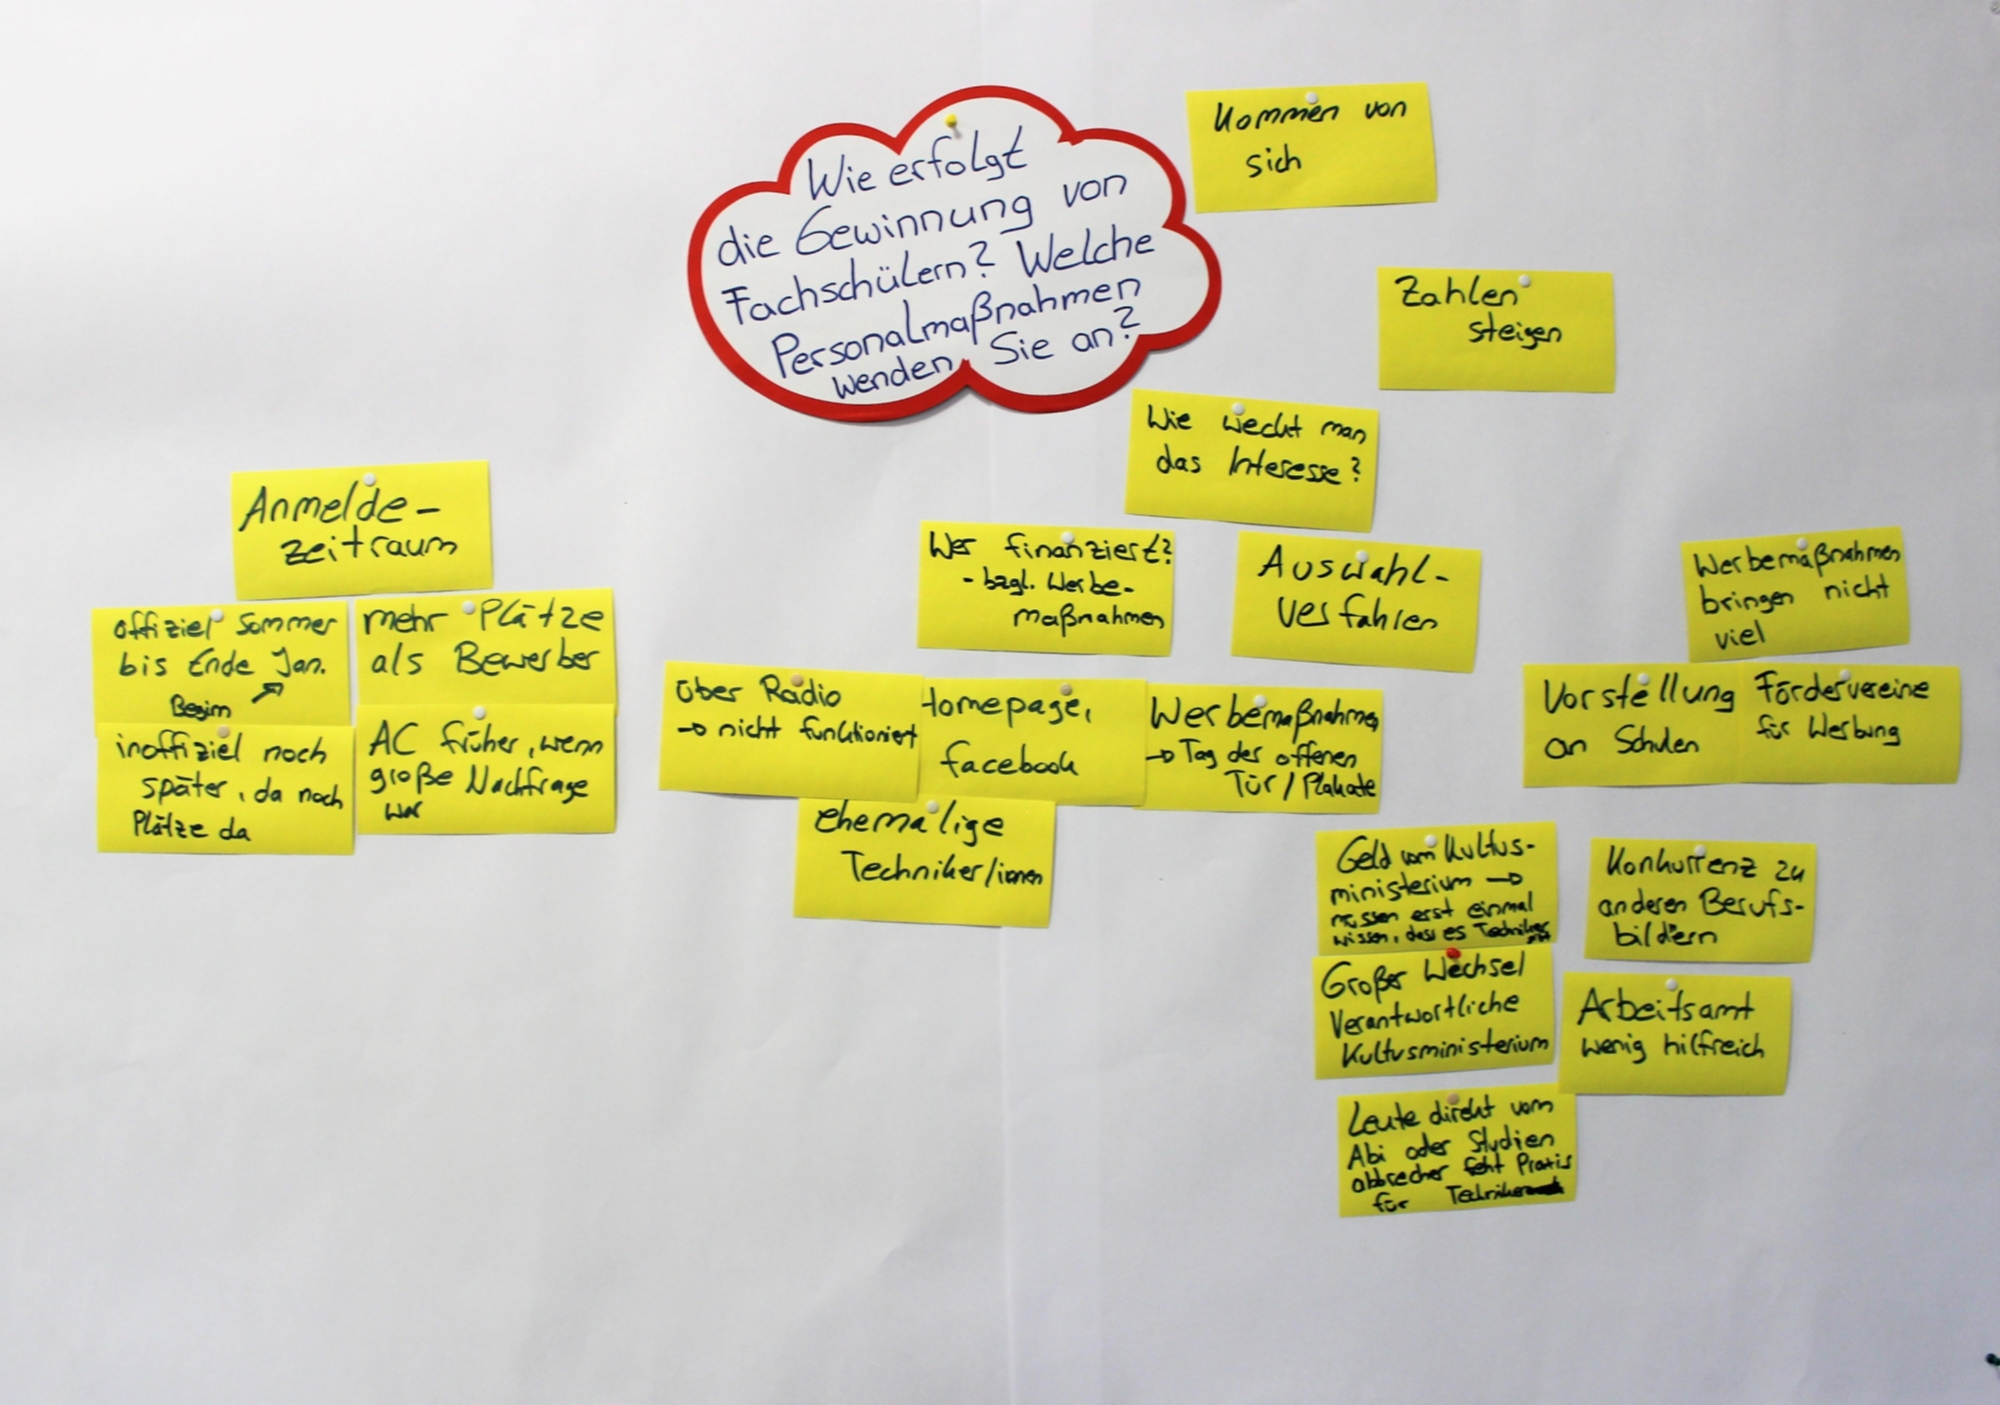 Wie erfolgt
die Gewinnung von
Fachschülern? Welche
Personalmaßnahmen
wenden Sie an?
Kommen von
sich
Zahlen
steigen
Wie weckt man
das Interesse?
Anmelde-
zeitraum
offiziel Sommer
bis Ende Jan.
Beginn
mehr Plätze
als Bewerber
inoffiziel noch
später, da noch
Plätze da
AC früher, wenn
große Nachfrage
war
Wer finanziert?
- bzgl. Werbe-
maßnahmen
Auswahl-
verfahren
über Radio
→ nicht funktioniert
Homepage,
facebook
Werbemaßnahmen
→ Tag der offenen
Tür / Plakate
ehemalige
Techniker/innen
Werbemaßnahmen
bringen nicht
viel
Vorstellung
an Schulen
Fördervereine
für Werbung
Geld vom Kultus-
ministerium →
müssen erst einmal
wissen, dass es Techniker
Konkurrenz zu
anderen Berufs-
bildern
Großer Wechsel
Verantwortliche
Kultusministerium
Arbeitsamt
wenig hilfreich
Leute direkt vom
Abi oder Studien
abbrecher fehlt Praxis
für Techniker